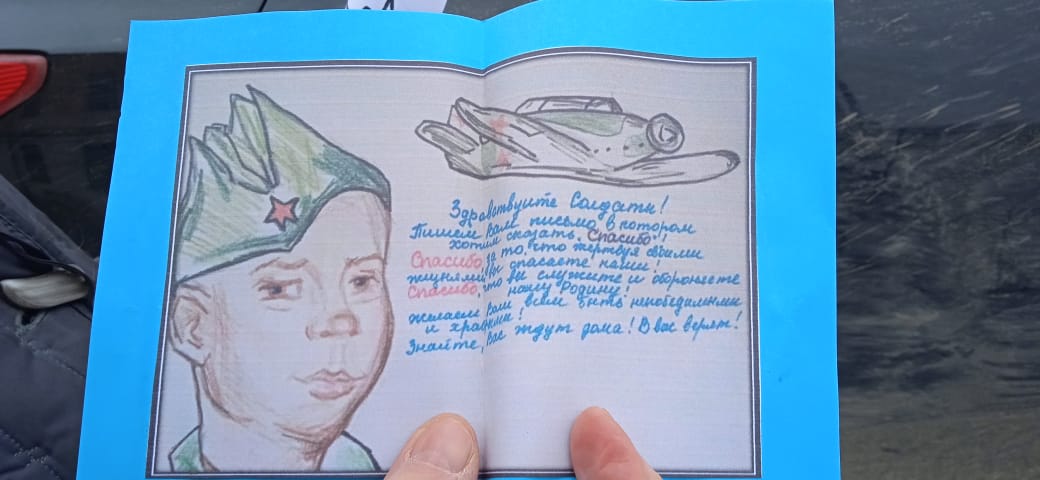 Здравствуйте Солдаты!
Пишем Вам письмо, в котором
хотим сказать "Спасибо"!
Спасибо, за то, что жертвуя своими
жизнями, Вы спасаете наши.
Спасибо, что вы служите и обороняете
нашу Родину!
Желаем Вам всем быть непобедимыми
и храбрыми!
Знайте, Вас ждут дома! В вас верят!